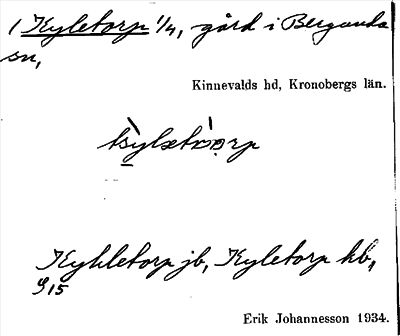 1 Kyletorp 1/4, gård i Bergunda
sn,
Kinnevalds hd, Kronobergs län.
Kykletorp jb, Kyletorp kb,
G 15
Erik Johannesson 1934.